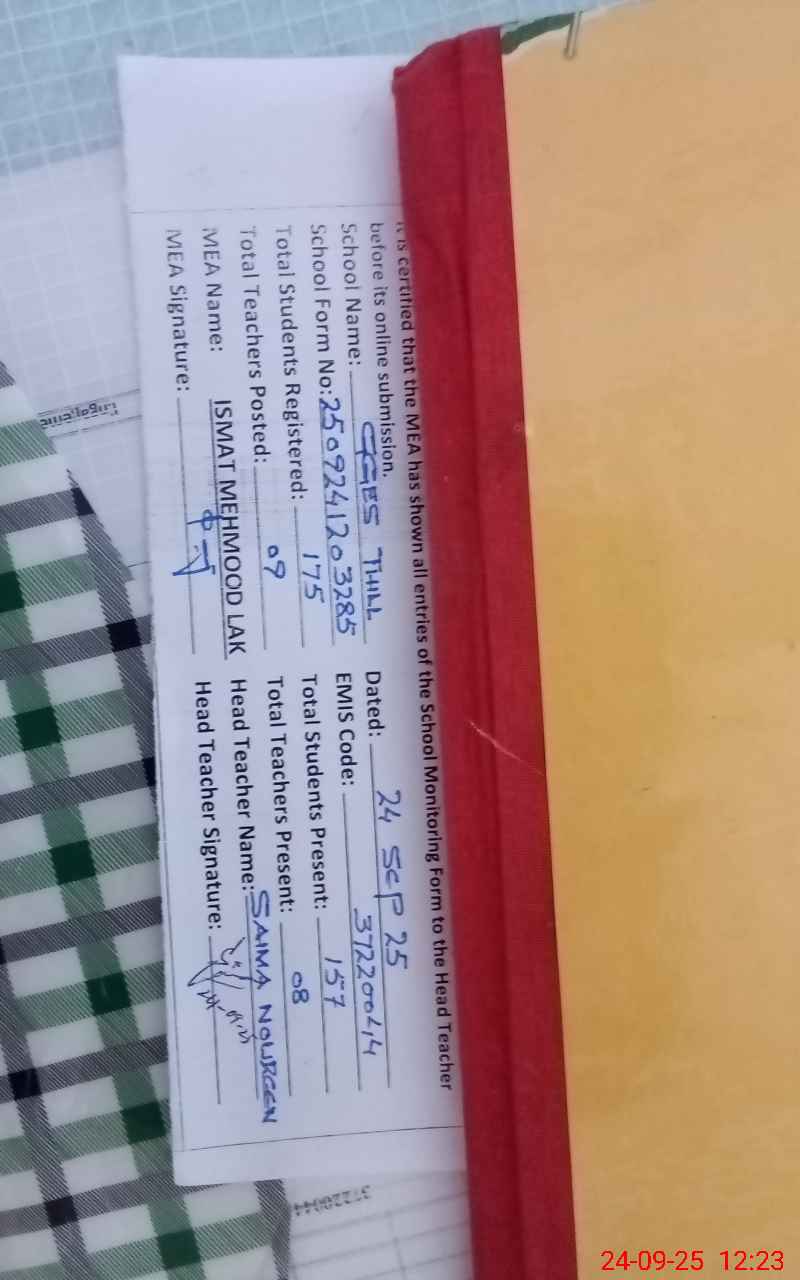 It is certified that the MEA has shown all entries of the School Monitoring Form to the Head Teacher
before its online submission.
School Name: GGES THILL Dated: 24 SEP 25
School Form No: 250924120 3285 EMIS Code: 37220044
Total Students Registered: 175 Total Students Present: 157
Total Teachers Posted: 09 Total Teachers Present: 08
MEA Name: ISMAT MEHMOOD LAK Head Teacher Name: SAIMA NOUREEN
MEA Signature: Head Teacher Signature:
37220044
24-09-25 12:23